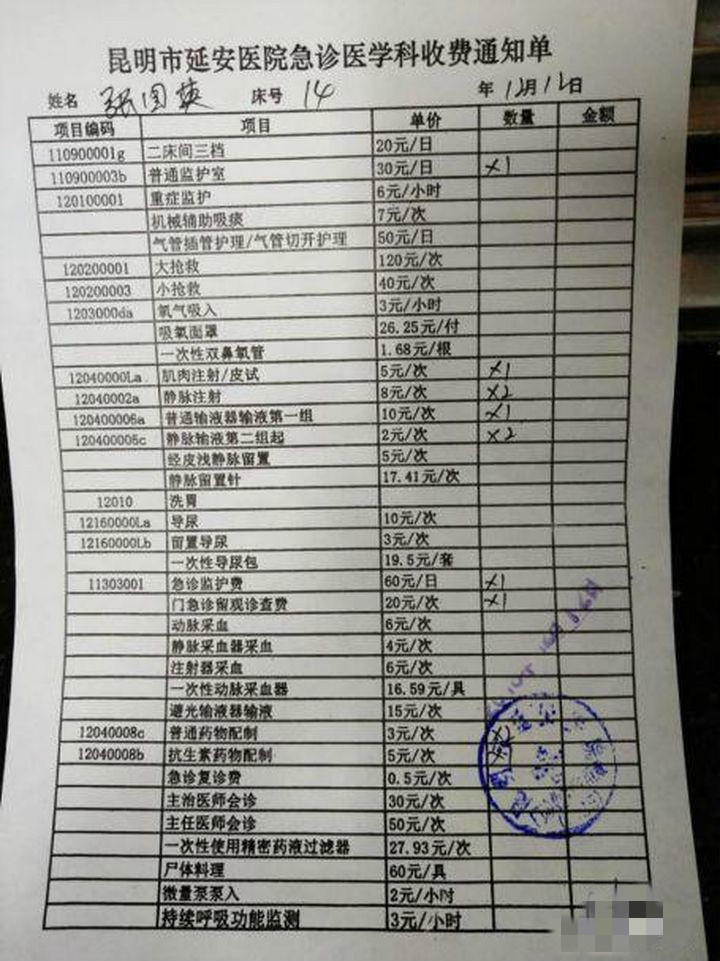 昆明市延安医院急诊医学科收费通知单
姓名 张国 床号 14 年 12月12日
项目编码 项目 单价 数量 金额
110900001g 二床间三档 20元/日
110900003b 普通监护室 30元/日 ×1
120100001 重症监护 6元/小时
机械辅助吸痰 7元/次
气管插管护理/气管切开护理 50元/日
120200001 大抢救 120元/次
120200003 小抢救 40元/次
1203000da 氧气吸入 3元/小时
吸氧面罩 26.25元/付
一次性双鼻氧管 1.68元/根
12040000La 肌肉注射/皮试 5元/次 ×1
12040002a 静脉注射 8元/次 ×2
120400006a 普通输液器输液第一组 10元/次 ×1
120400006c 静脉输液第二组起 2元/次 ×2
经皮浅静脉留置 5元/次
静脉留置针 17.41元/次
12010 洗胃
12160000La 导尿 10元/次
12160000Lb 留置导尿 3元/次
一次性导尿包 19.5元/套
11303001 急诊监护费 60元/日 ×1
门急诊留观诊查费 20元/次 ×1
动脉采血 6元/次
静脉采血器采血 4元/次
注射器采血 6元/次
一次性动脉采血器 16.59元/具
避光输液器输液 15元/次
12040008c 普通药物配制 3元/次 ×2
12040008b 抗生素药物配制 5元/次
急诊复诊费 0.5元/次
主治医师会诊 30元/次
主任医师会诊 50元/次
一次性使用精密药液过滤器 27.93元/次
尸体料理 60元/具
微量泵泵入 2元/小时
持续呼吸功能监测 3元/小时